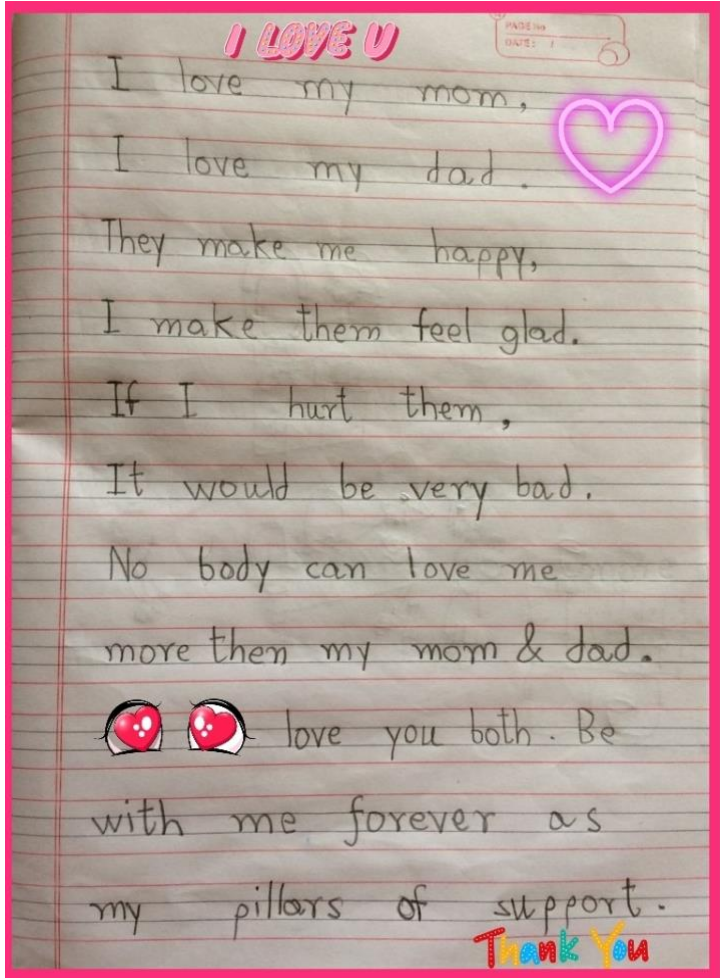 I LOVE U
PAGE No
DATE: /
I love my mom,
I love my dad.
They make me happy,
I make them feel glad.
If I hurt them,
It would be very bad.
No body can love me
more then my mom & dad.
love you both. Be
with me forever as
my pillars of support.
Thank You